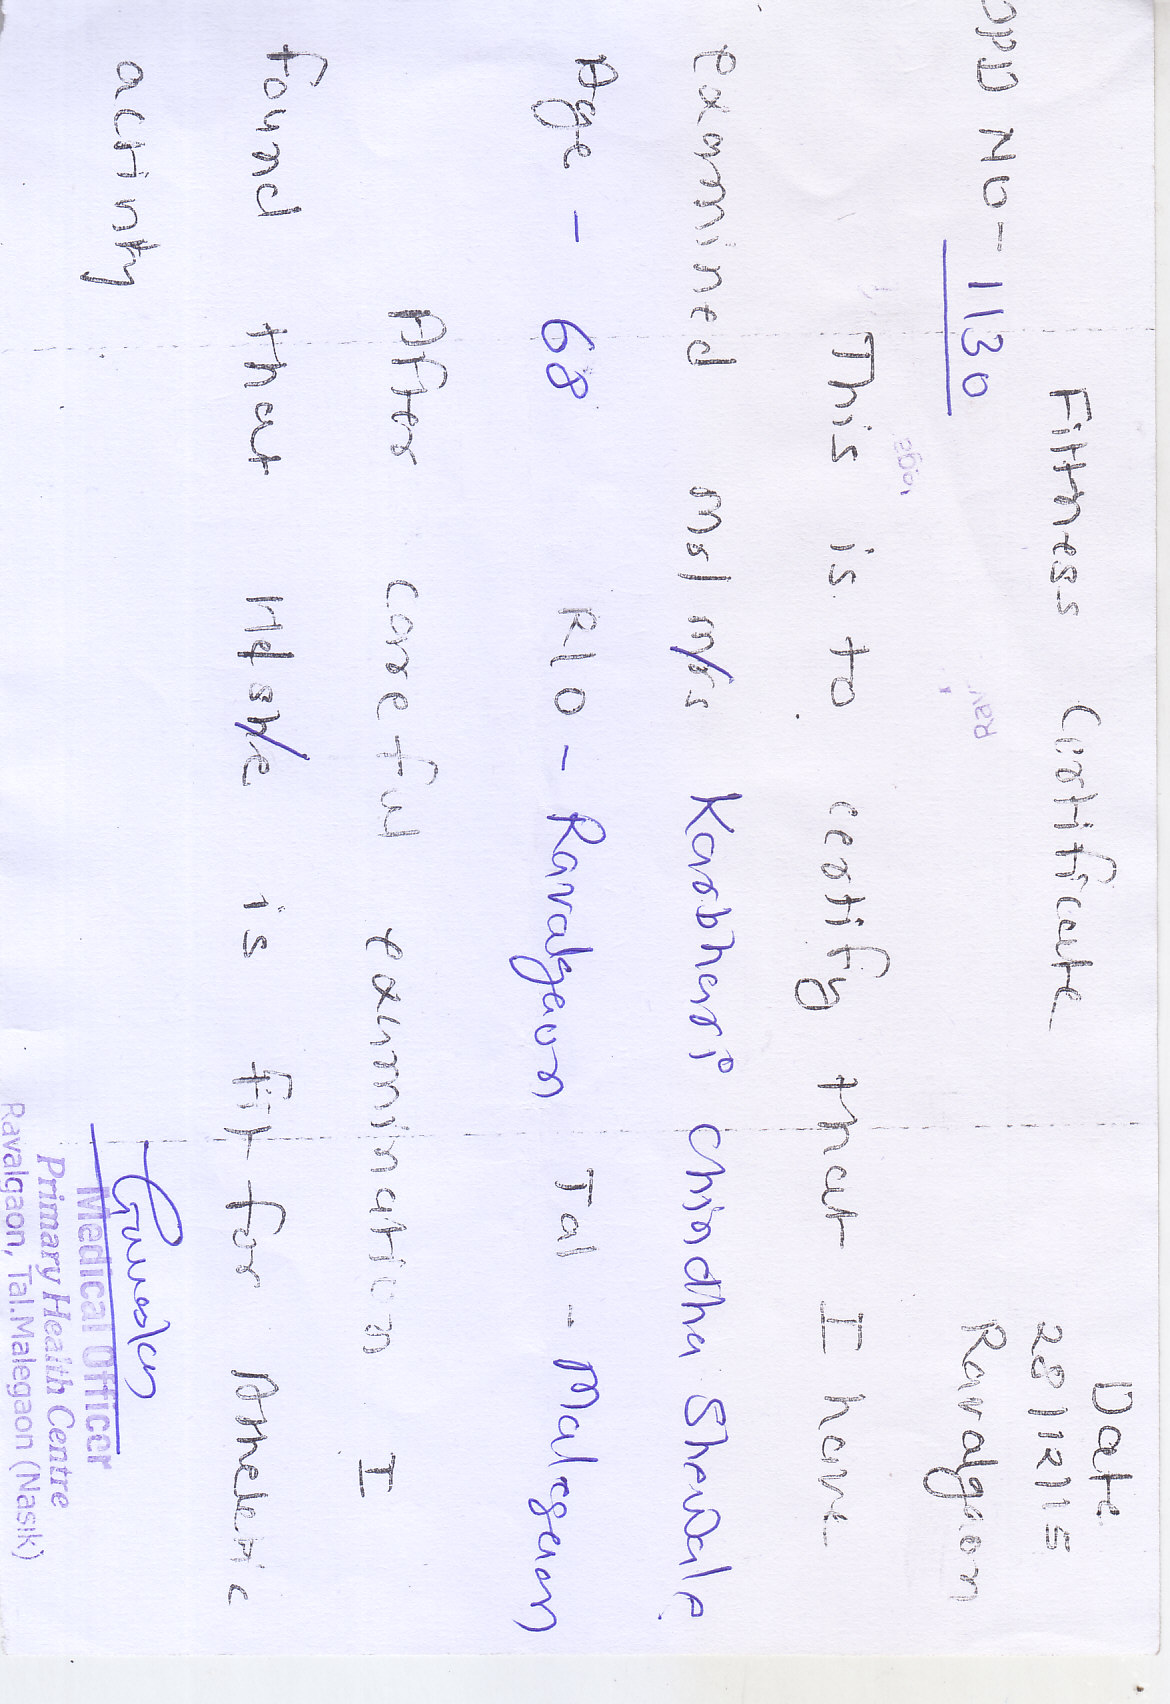 Date
Fitness Certificate 28/12/15
OPD No- 1130 Ravalgaon
This is to certify that I have
examined ms/m/rs Karbhari Chindha Shewale
Age - 68 R/O - Ravalgaon Tal - Malegaon
After careful examination I
found that He/she is fit for Athletic
activity
Medical Officer
Primary Health Centre
Ravalgaon, Tal.Malegaon (Nasik)